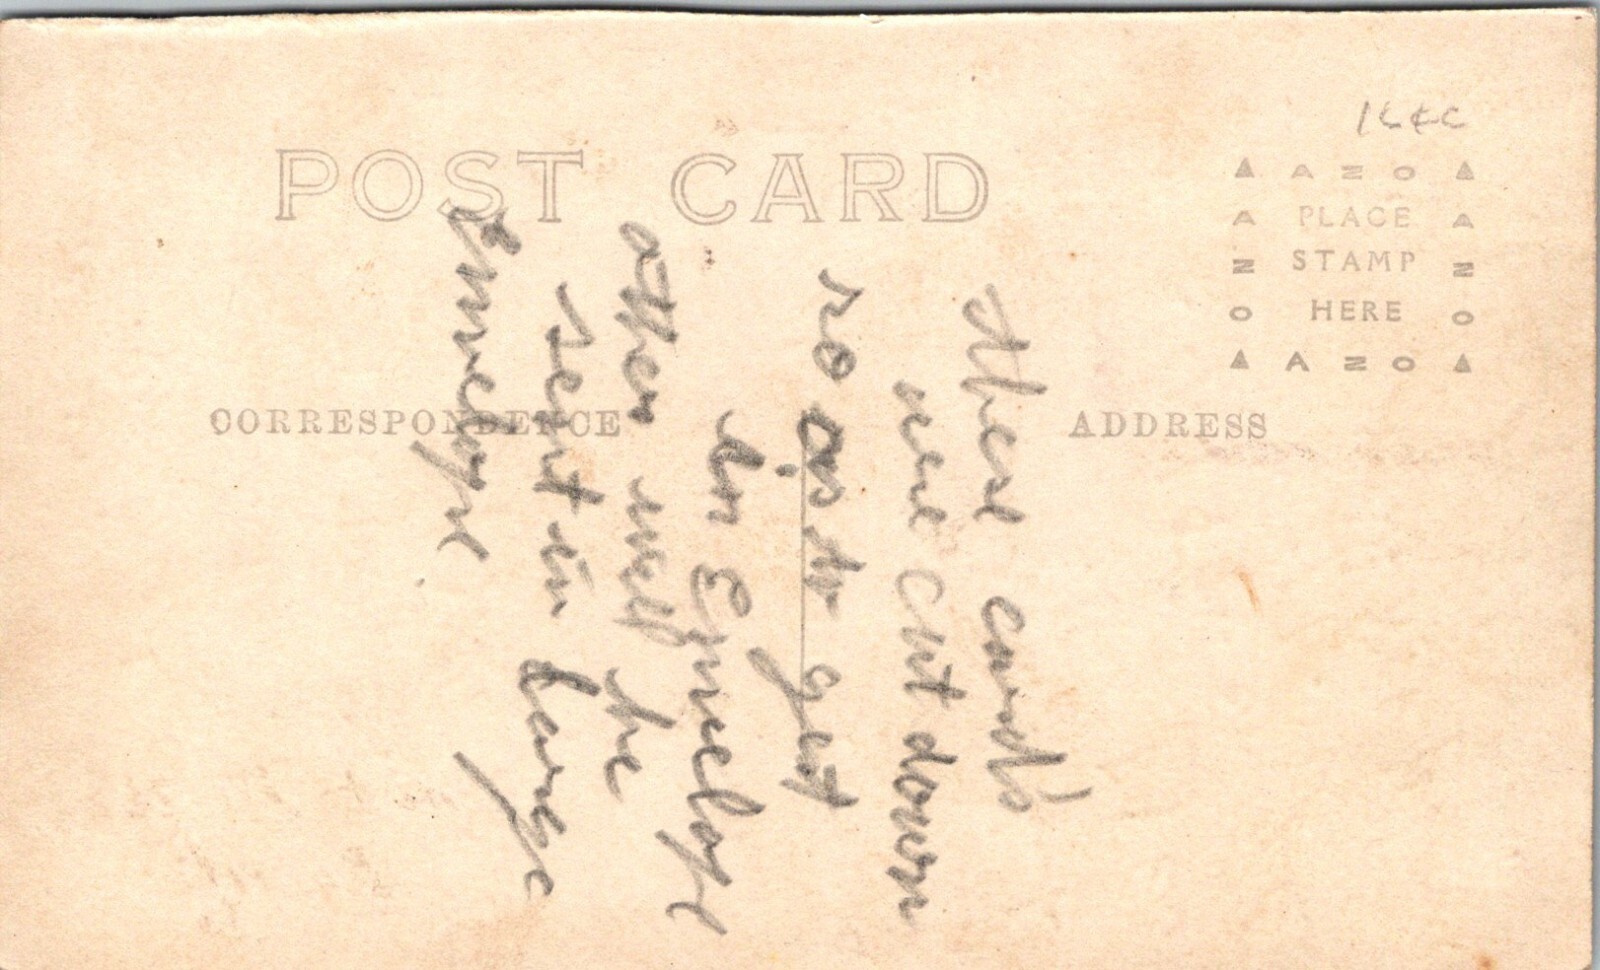 POST CARD
CORRESPONDENCE
ADDRESS
AZO
PLACE
STAMP
HERE
AZO
These cards
were cut down
so as to get
in Envelope
other will be
sent in large
Envelope